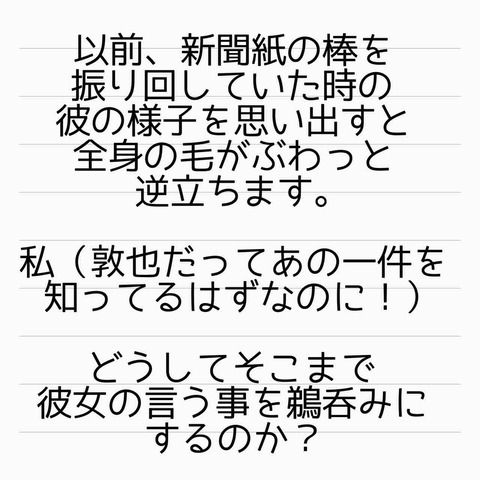 以前、新聞紙の棒を
振り回していた時の
彼の様子を思い出すと
全身の毛がぶわっと
逆立ちます。
私（敦也だってあの一件を
知ってるはずなのに！）
どうしてそこまで
彼女の言う事を鵜呑みに
するのか？